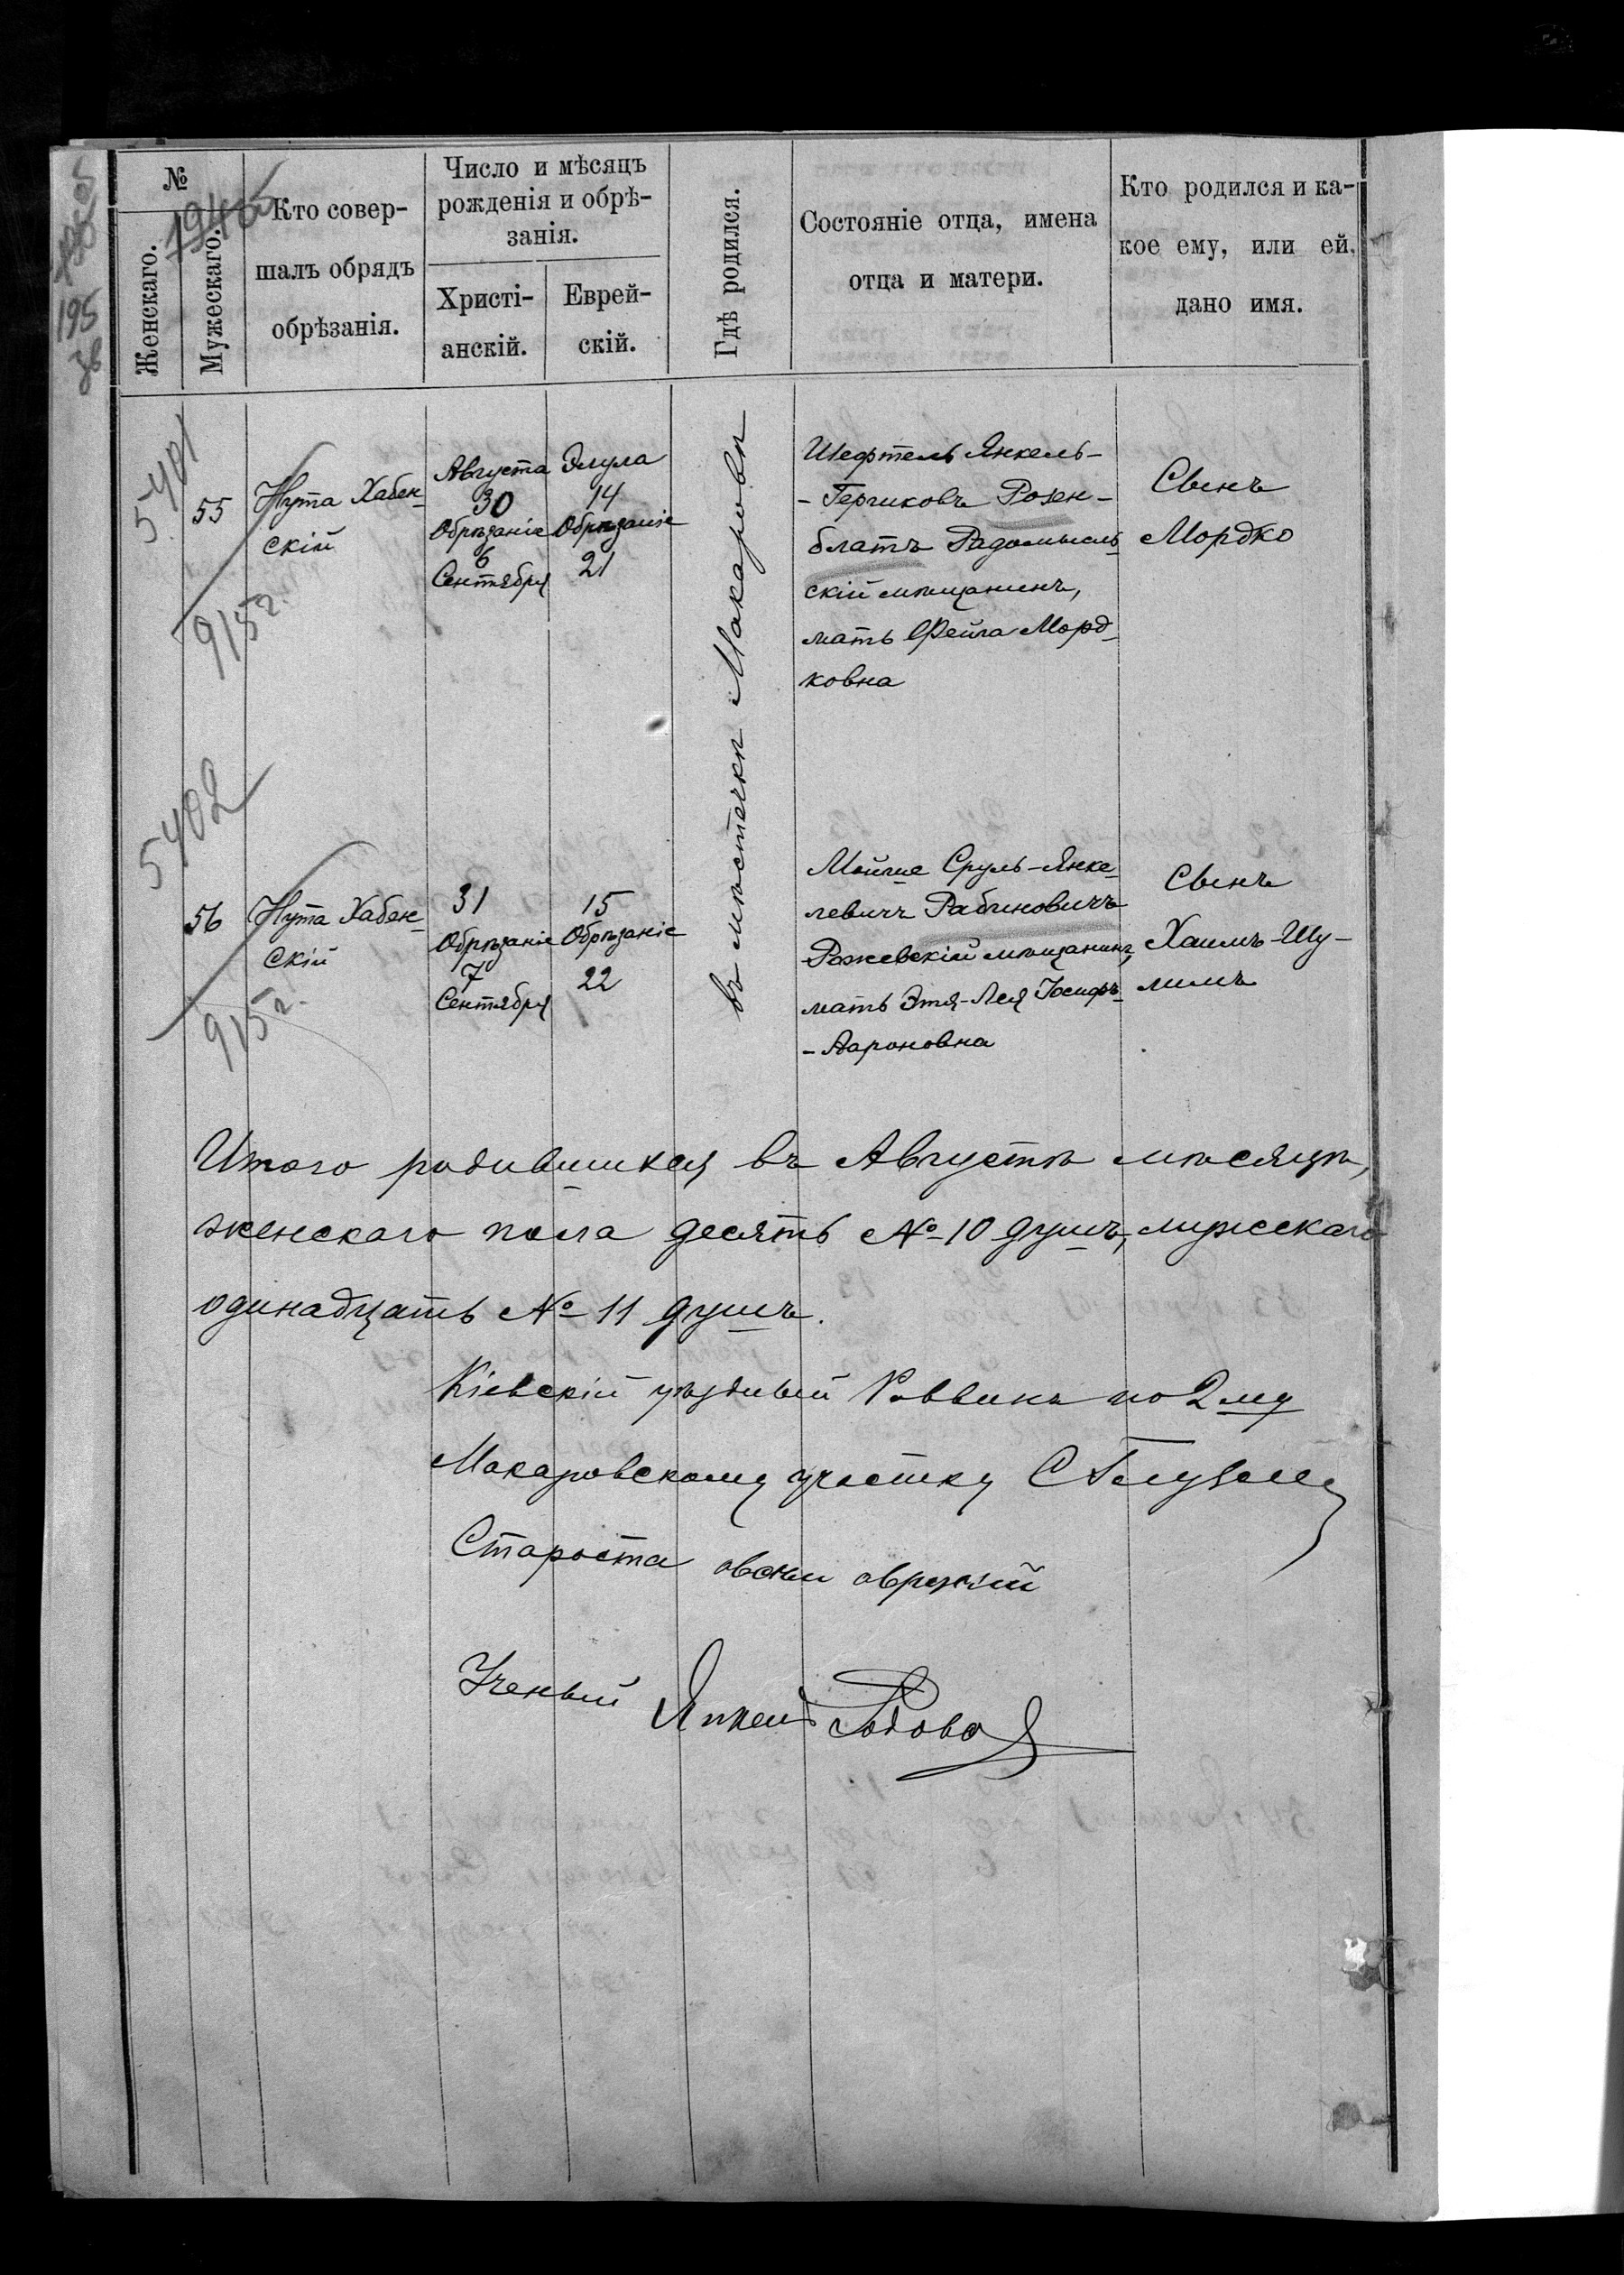 №
19466
Женскаго.
Мужескаго.
Кто совер-
шалъ обрядъ
обрѣзанія.
Число и мѣсяцъ
рожденія и обрѣ-
занія.
Христі-
анскій.
Еврей-
скій.
Гдѣ родился.
Состояніе отца, имена
отца и матери.
Кто родился и ка-
кое ему, или ей,
дано имя.
195
38
5401
55
Нута Хабен-
скій
915 г.
Августа
30
Обрѣзаніе
6
Сентября
Элула
14
Обрѣзаніе
21
въ мѣстечкѣ Макаровѣ
Шефтель Янкель-
-Герчиковъ Розен-
блатъ Радомысль-
скій мѣщанинъ,
мать Фейга Морд-
ковна
Сынъ
Мордко
5402
56
Нута Хабен-
скій
915 г.
31
Обрѣзаніе
7
Сентября
15
Обрѣзаніе
22
Мойше Сруль-Янке-
левичъ Рабиновичъ
Рожевскій мѣщанинъ,
мать Этя-Лея Іосифъ-
-Аароновна
Сынъ
Хаимъ-Шу-
лимъ
Итого родившихся въ Августѣ мѣсяцѣ,
женскаго пола десять № 10 душъ, мужескаго
одинадцать № 11 душъ.
Кіевскій уѣздный Раввинъ по 2му
Макаровскому участку С
Староста
Ученый Янкель